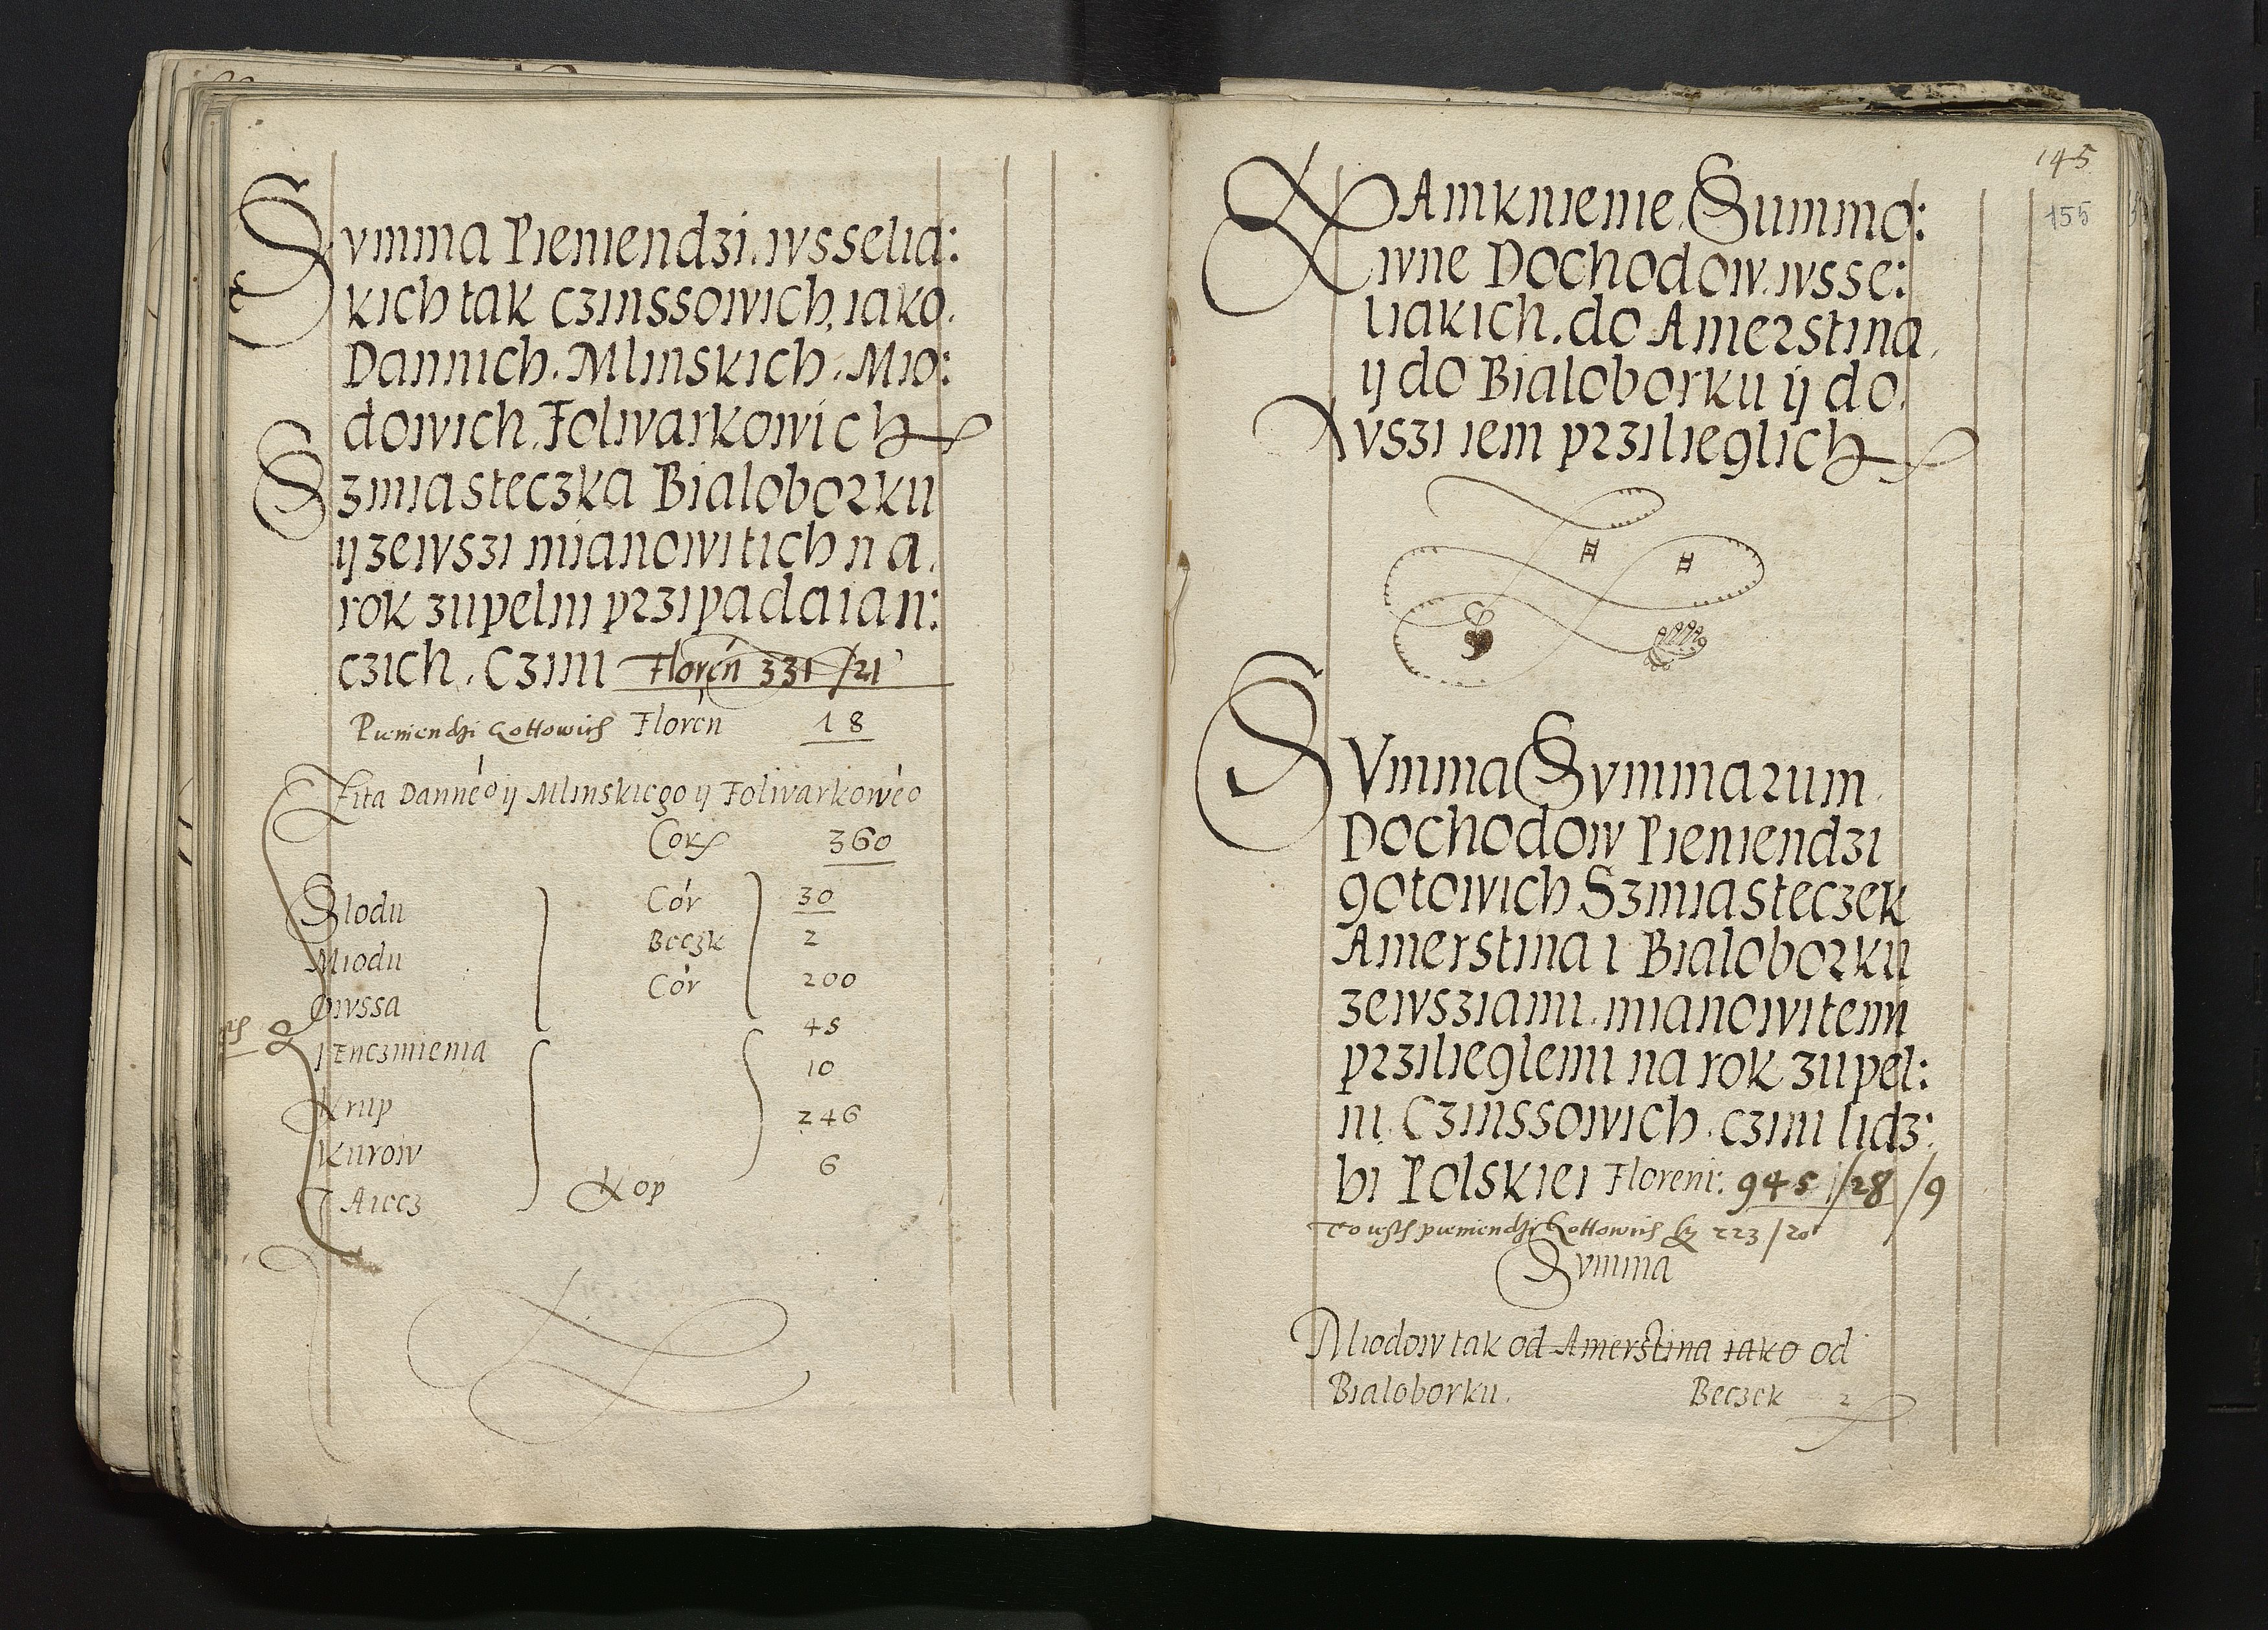 Summa Pieniendzi. wsselia:
kich tak czinssowich, iako.
Dannich. Mlinskich. Mio:
dowich. Folwarkowich
Szmiasteczka Bialoborku
ij zewszi mianowitich na.
rok zupelni przipadaian:
czich. Czini Floren 331 /21
Pieniendzi Gottowich Floren 18
Zita Danneo ij Mlinskiego ij Folwarkoweo
Cor 360
Slodu Cor 30
Miodu Beczk 2
Owssa Cor 200
Jenczmienia 45
Krup 10
Kurow 246
Aiecz Kop 6
145
155
ZAmknienie Summo:
wne Dochodow. wsse:
liakich. do Amerstina,
ij do Bialoborku ij do.
wszi iem przilieglich
SVmma Summarum
Dochodow Pieniendzi
gotowich Szmiasteczek
Amerstina i Bialoborku
zewsziami. mianowitemi
przilieglemi na rok zupel:
ni. Czinssowich. czini lidz:
bi Polskiei Floreni: 945 /28 /9
pieniendzi Gottowich 223 /20
Summa
Miodow tak od Amerstina iako od
Bialoborku. Beczek 2